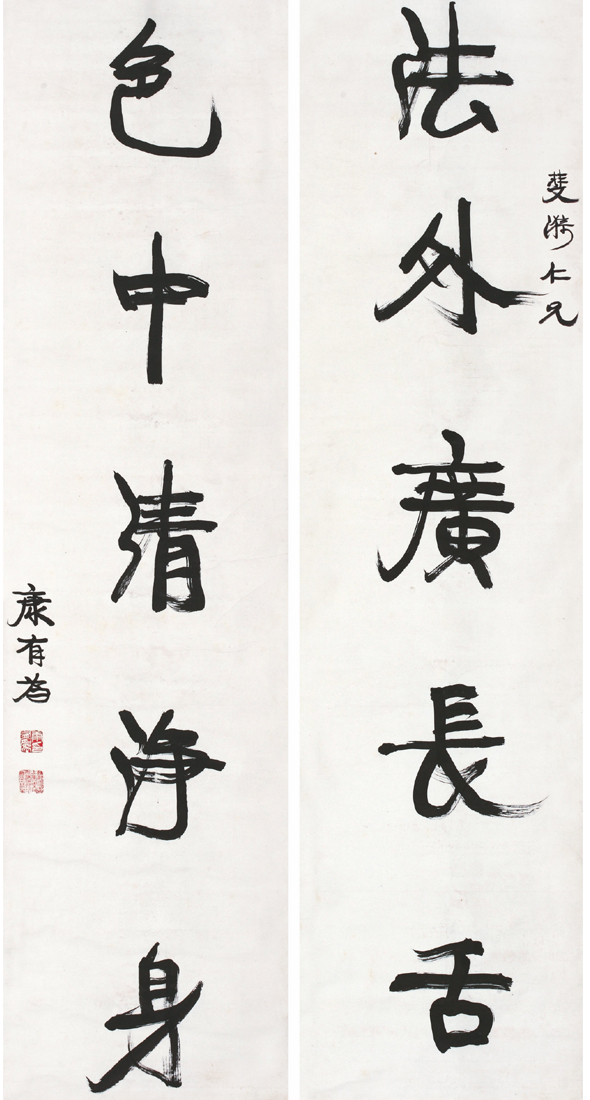 斐漪仁兄
法外廣長舌
色中清淨身
康有為